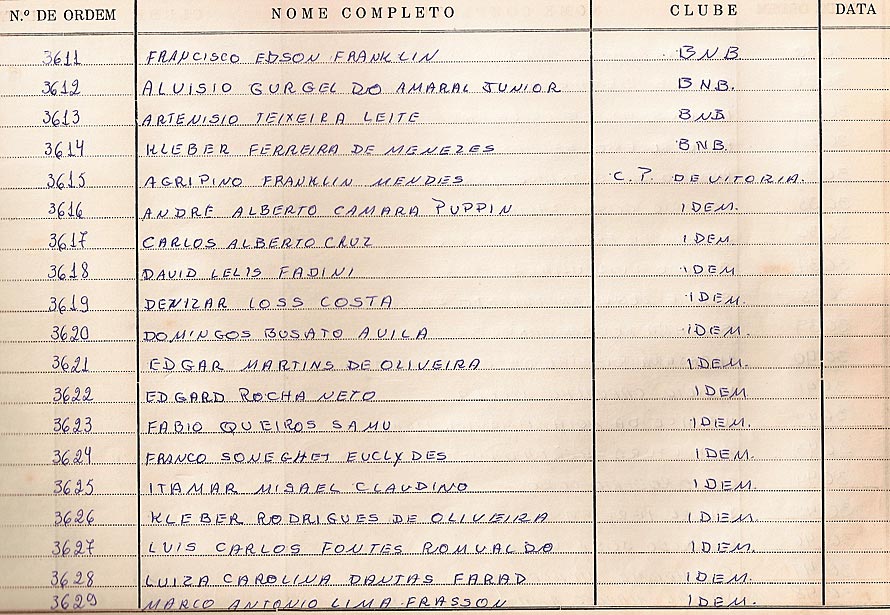 N.º DE ORDEM NOME COMPLETO CLUBE DATA
3611 FRANCISCO EDSON FRANKLIN BNB
3612 ALUISIO GURGEL DO AMARAL JUNIOR BNB.
3613 ARTENISIO TEIXEIRA LEITE BNB
3614 KLEBER FERREIRA DE MENEZES BNB
3615 AGRIPINO FRANKLIN MENDES C.P. DE VITORIA.
3616 ANDRE ALBERTO CAMARA PUPPIN IDEM.
3617 CARLOS ALBERTO CRUZ IDEM
3618 DAVID LELIS FADINI IDEM
3619 DENIZAR LOSS COSTA IDEM.
3620 DOMINGOS BUSATO AVILA IDEM.
3621 EDGAR MARTINS DE OLIVEIRA IDEM.
3622 EDGARD ROCHA NETO IDEM
3623 FABIO QUEIROS SAMU IDEM.
3624 FRANCO SONEGHET EUCLYDES IDEM.
3625 ITAMAR MISAEL CLAUDINO IDEM.
3626 KLEBER RODRIGUES DE OLIVEIRA IDEM.
3627 LUIS CARLOS FONTES ROMUALDO IDEM.
3628 LUIZA CAROLINA DANTAS FARAD IDEM.
3629 MARCO ANTONIO LIMA FRASSON IDEM.